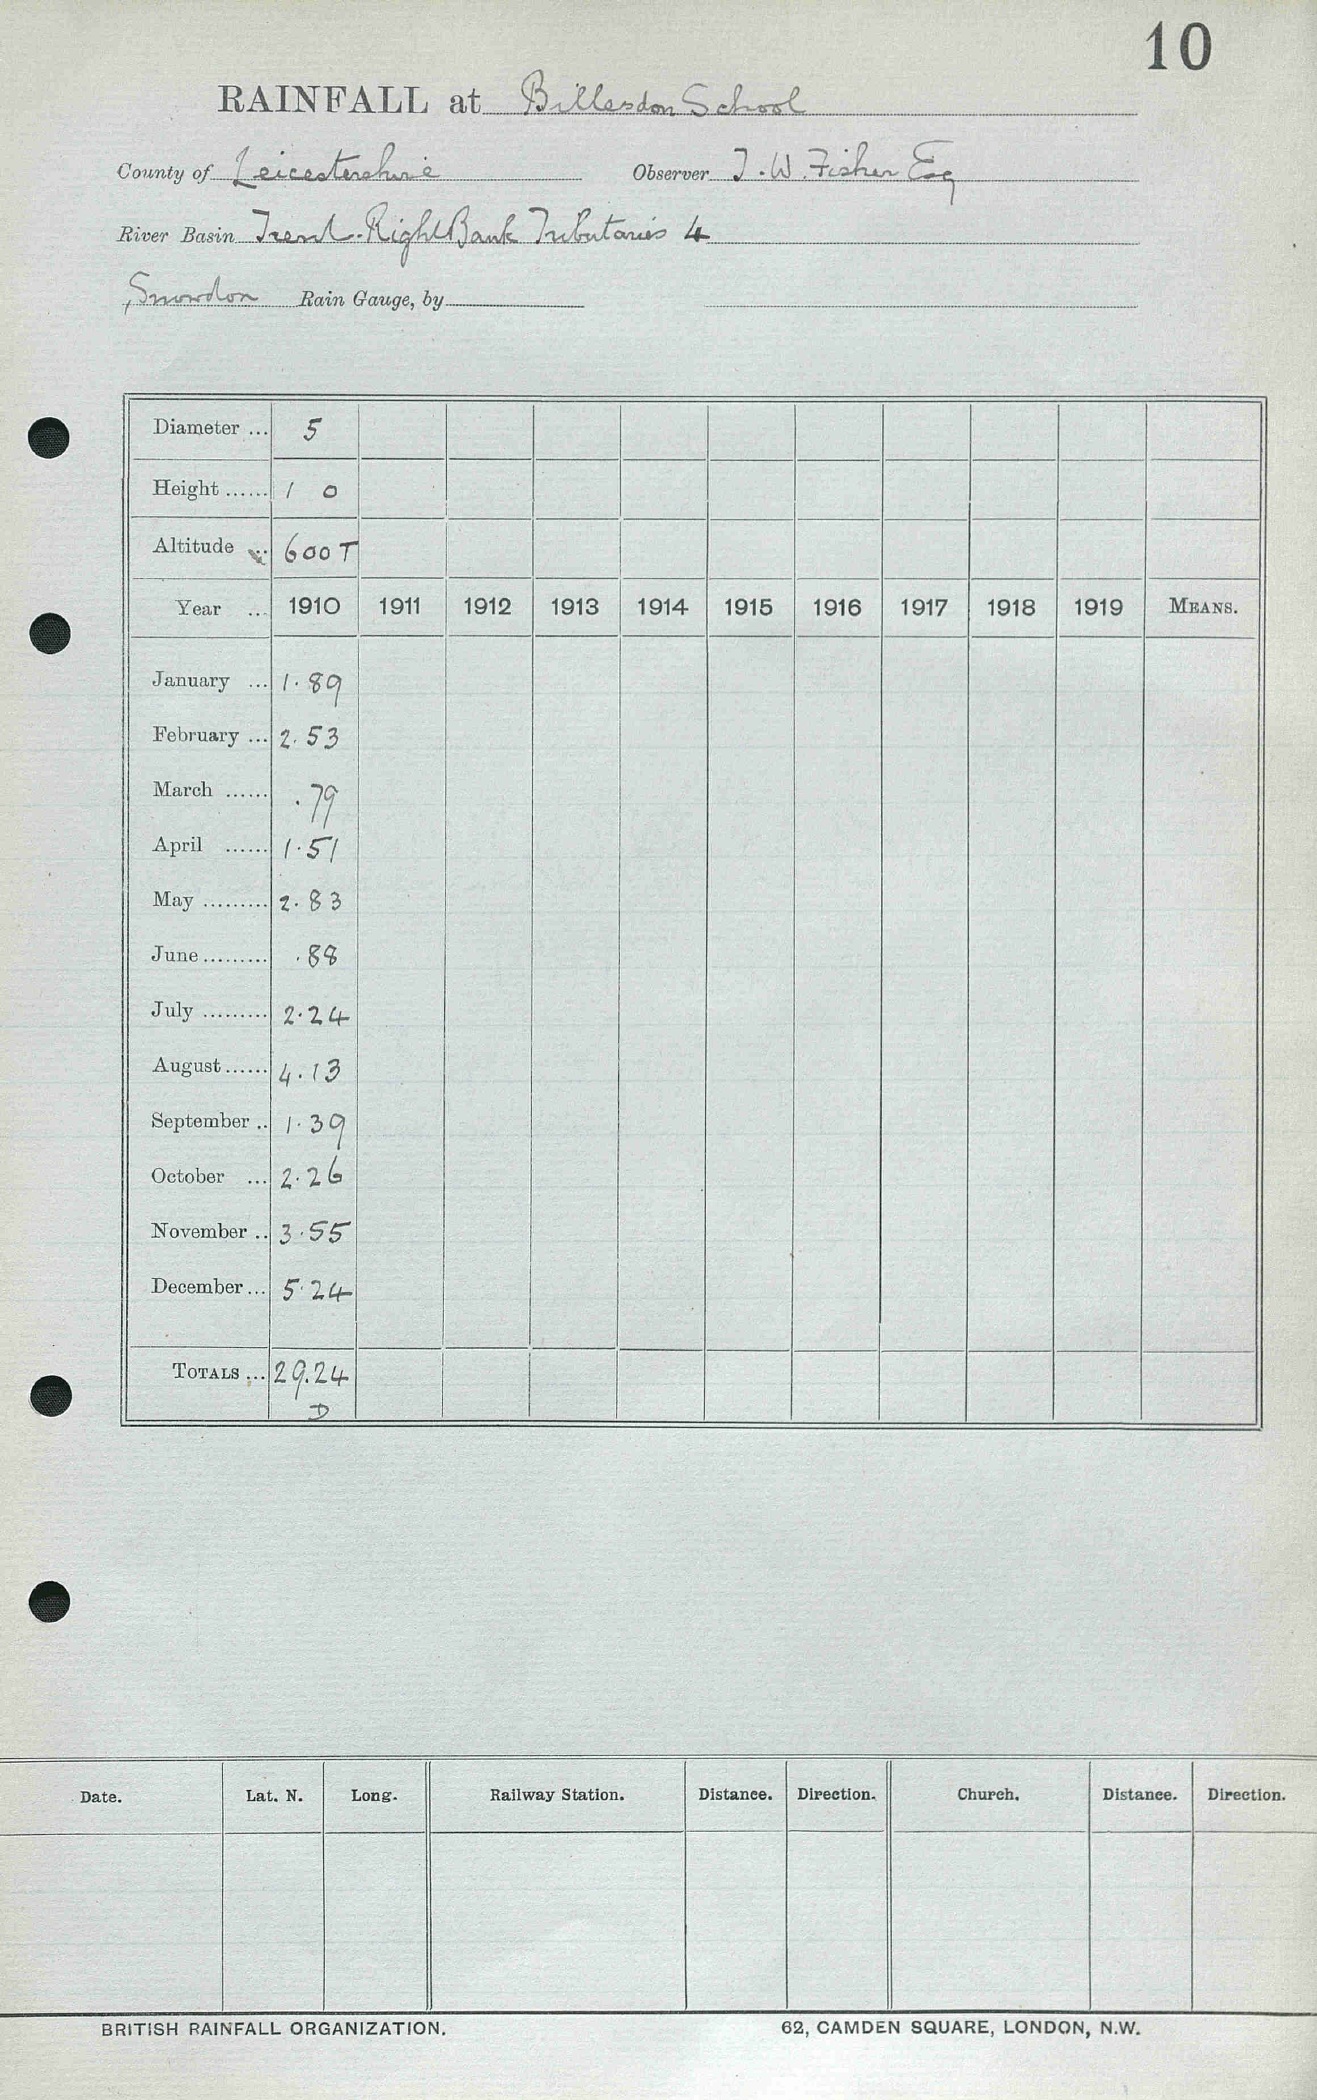 10
RAINFALL at Billesdon School
County of Leicestershire Observer J. W. Fisher Esq
River Basin Trent. Right Bank Tributaries 4
Snowdon Rain Gauge, by
Diameter ... 5
Height ...... 1 0
Altitude ... 600 T
Year ... 1910 1911 1912 1913 1914 1915 1916 1917 1918 1919 MEANS.
January ... 1.89
February ... 2.53
March ...... .79
April ...... 1.51
May ......... 2.83
June ......... .88
July ......... 2.24
August ...... 4.13
September .. 1.39
October ... 2.26
November .. 3.55
December ... 5.24
TOTALS ... 29.24
D
Date. Lat. N. Long. Railway Station. Distance. Direction. Church. Distance. Direction.
BRITISH RAINFALL ORGANIZATION. 62, CAMDEN SQUARE, LONDON, N.W.